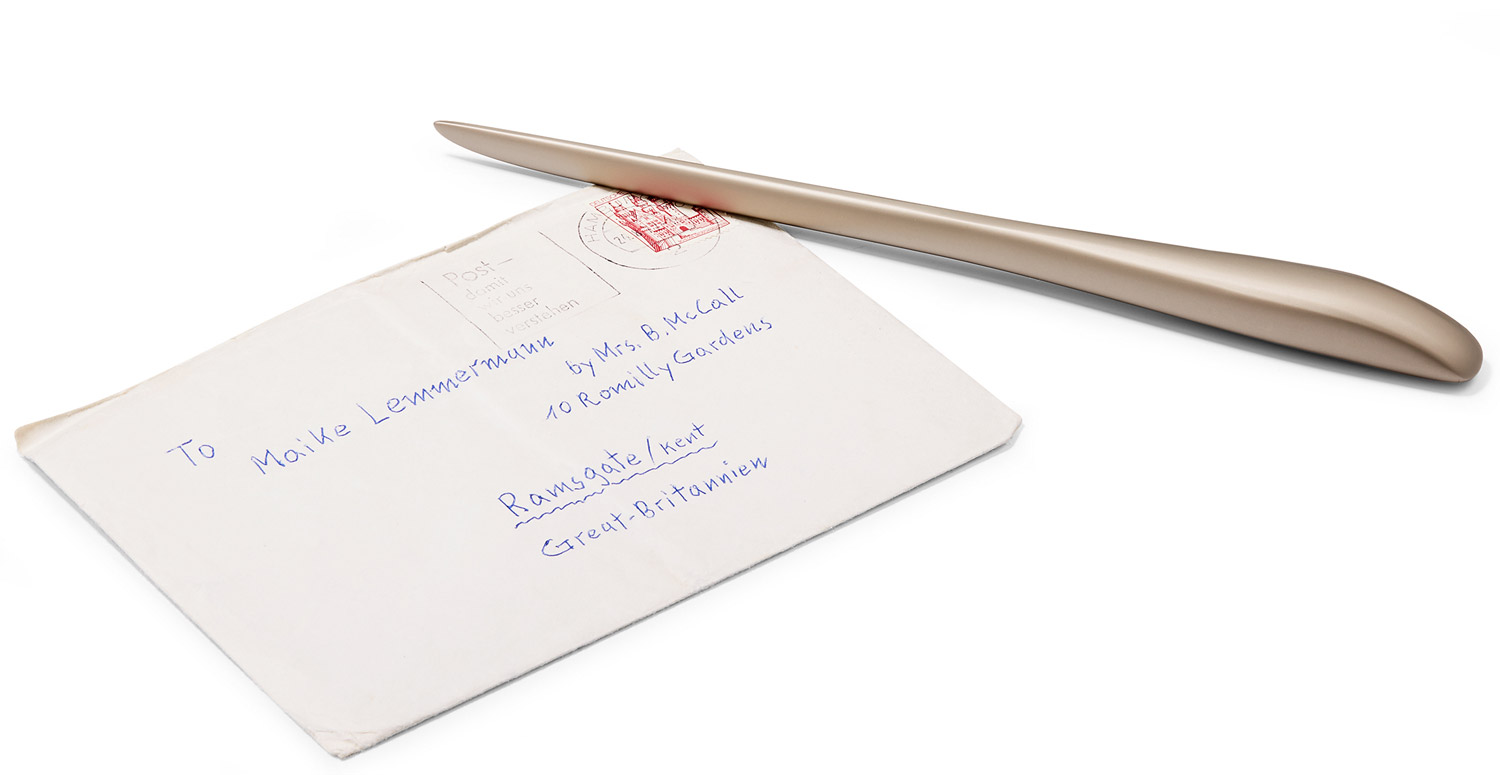 Post–
damit
wir uns
besser
verstehen
To Maike Lemmermann
by Mrs. B. McCall
10 Romilly Gardens
Ramsgate/Kent
Great-Britannien